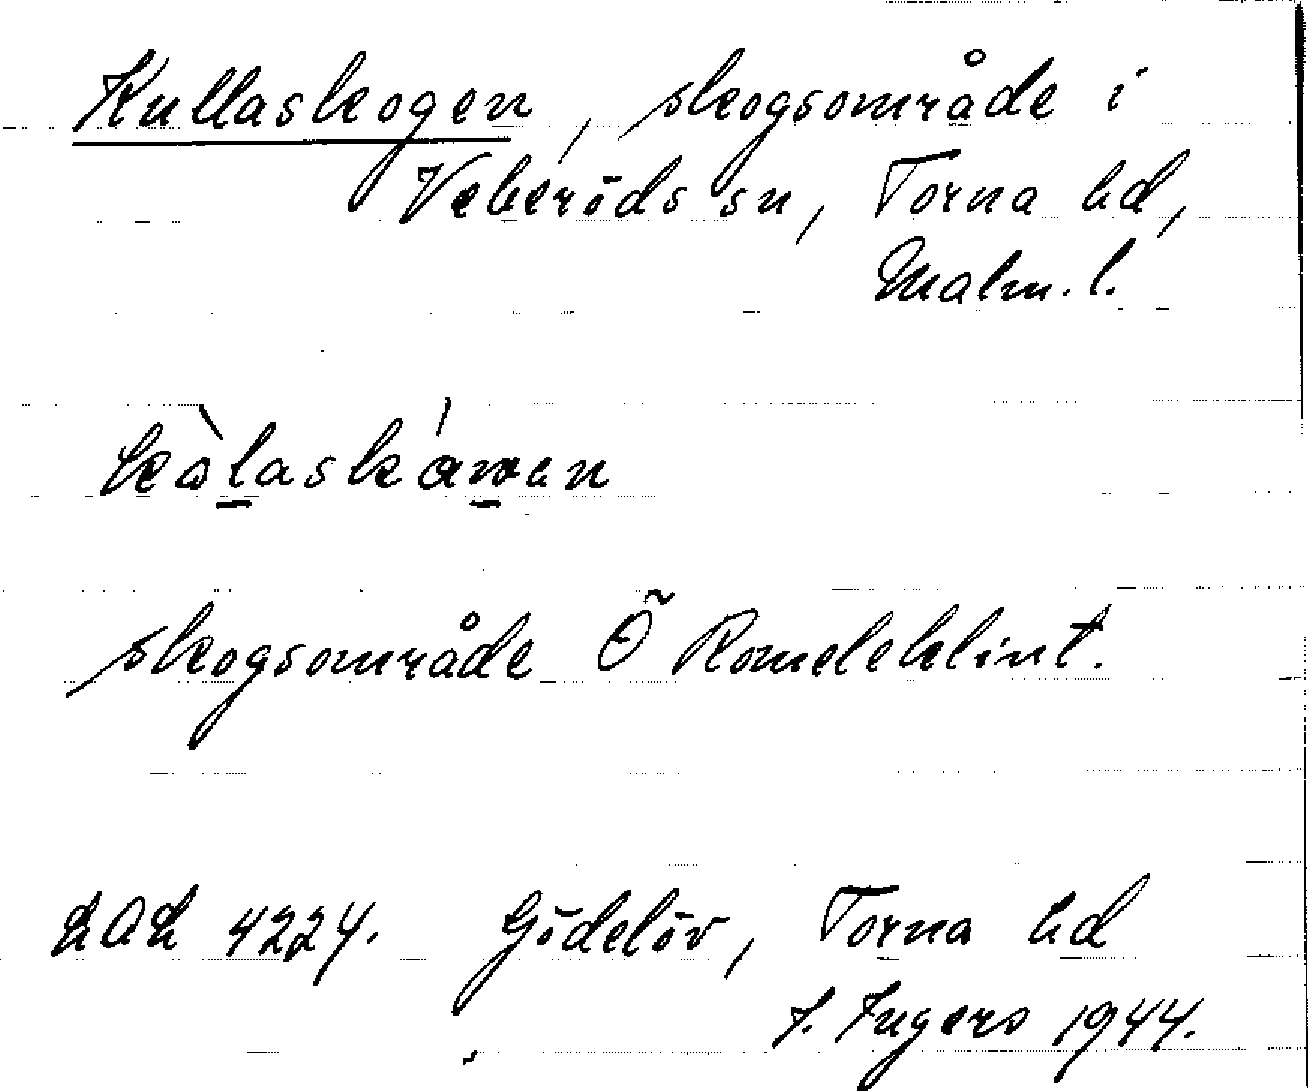 Kullaskogen, skogsområde i
Veberöds sn, Torna hd,
Malm. l.
skogsområde Ö Romeleklint.
LAL 4224. Gödelöv, Torna hd
I. Ingers 1944.